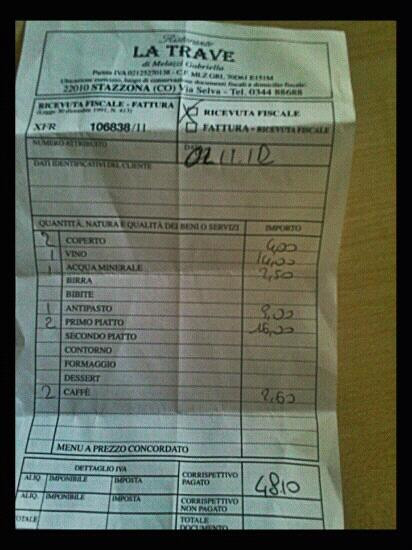 Ristorante
LA TRAVE
di Melazzi Gabriella
Partita IVA 02125270138 - C.F. MLZ GRL
Ubicazione esercizio, luogo di conservazione documenti fiscali e domicilio fiscale:
22010 STAZZONA (CO) Via Selva - Tel. 0344 88688
RICEVUTA FISCALE - FATTURA
X RICEVUTA FISCALE
XFR 106838/11
FATTURA - RICEVUTA FISCALE
NUMERO ATTRIBUITO
02.11.12
DATI IDENTIFICATIVI DEL CLIENTE
QUANTITÀ, NATURA E QUALITÀ DEI BENI O SERVIZI IMPORTO
2 COPERTO 4,00
1 VINO 14,00
1 ACQUA MINERALE 2,50
BIRRA
BIBITE
1 ANTIPASTO 9,00
2 PRIMO PIATTO 16,00
SECONDO PIATTO
CONTORNO
FORMAGGIO
DESSERT
2 CAFFÈ 2,60
MENU A PREZZO CONCORDATO
DETTAGLIO IVA
CORRISPETTIVO PAGATO 48,10
ALIQ. IMPONIBILE IMPOSTA
ALIQ. IMPONIBILE IMPOSTA
CORRISPETTIVO NON PAGATO
TOTALE
TOTALE DOCUMENTO